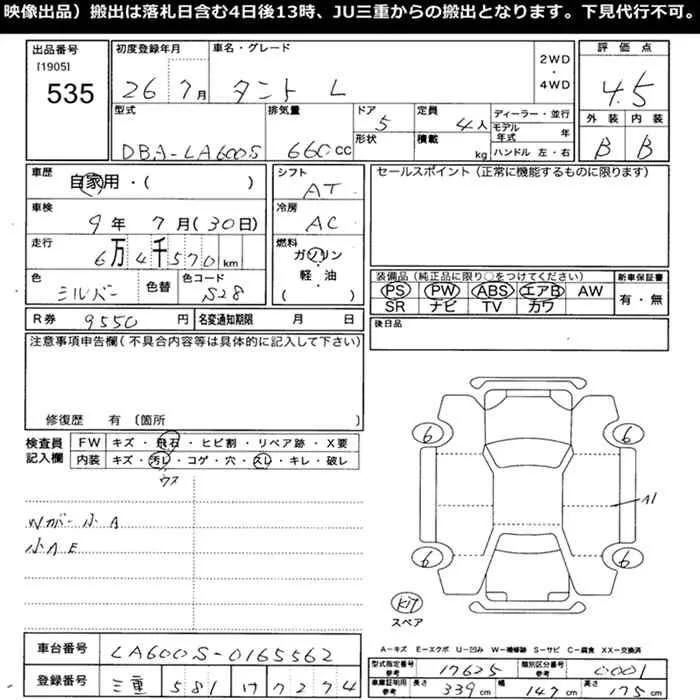 映像出品）搬出は落札日含む4日後13時、JU三重からの搬出となります。下見代行不可。
出品番号
[1905]
535
初度登録年月
26 7月
車名・グレード
タント L
2WD
・
4WD
評価点
4.5
外装 内装
B B
型式
DBA-LA600S
排気量
660cc
ドア
5
形状
定員
4人
積載
kg
ディーラー・並行
モデル年式 年
ハンドル 左・右
車歴
自家用・( )
車検
9年 7月(30日)
走行
6万4千570km
色
シルバー
色替
色コード
S28
シフト
AT
冷房
AC
燃料
ガソリン
・
軽・油
( )
セールスポイント（正常に機能するものに限ります）
装備品（純正品に限り○をつけてください）
PS PW ABS エアB AW
SR ナビ TV カワ
新車保証書
有・無
R券 9550円
名変通知期限 月 日
後日品
注意事項申告欄（不具合内容等は具体的に記入して下さい）
修復歴 有 〔箇所
検査員
記入欄
FW キズ・飛石・ヒビ割・リペア跡・X要
内装 キズ・汚レ・コゲ・穴・スレ・キレ・破レ
ウス
Wガー小A
小AE
6 6
A1
6 6
スペア
A−キズ E−エクボ U−凹み W−補修跡 S−サビ C−腐食 XX−交換済
車台番号 LA600S-0165562
登録番号 三重 581 け 7274
型式指定番号
参考
17625
類別区分番号
参考
0001
車庫証明用
参考
長さ 339cm 幅 147cm 高さ 175cm